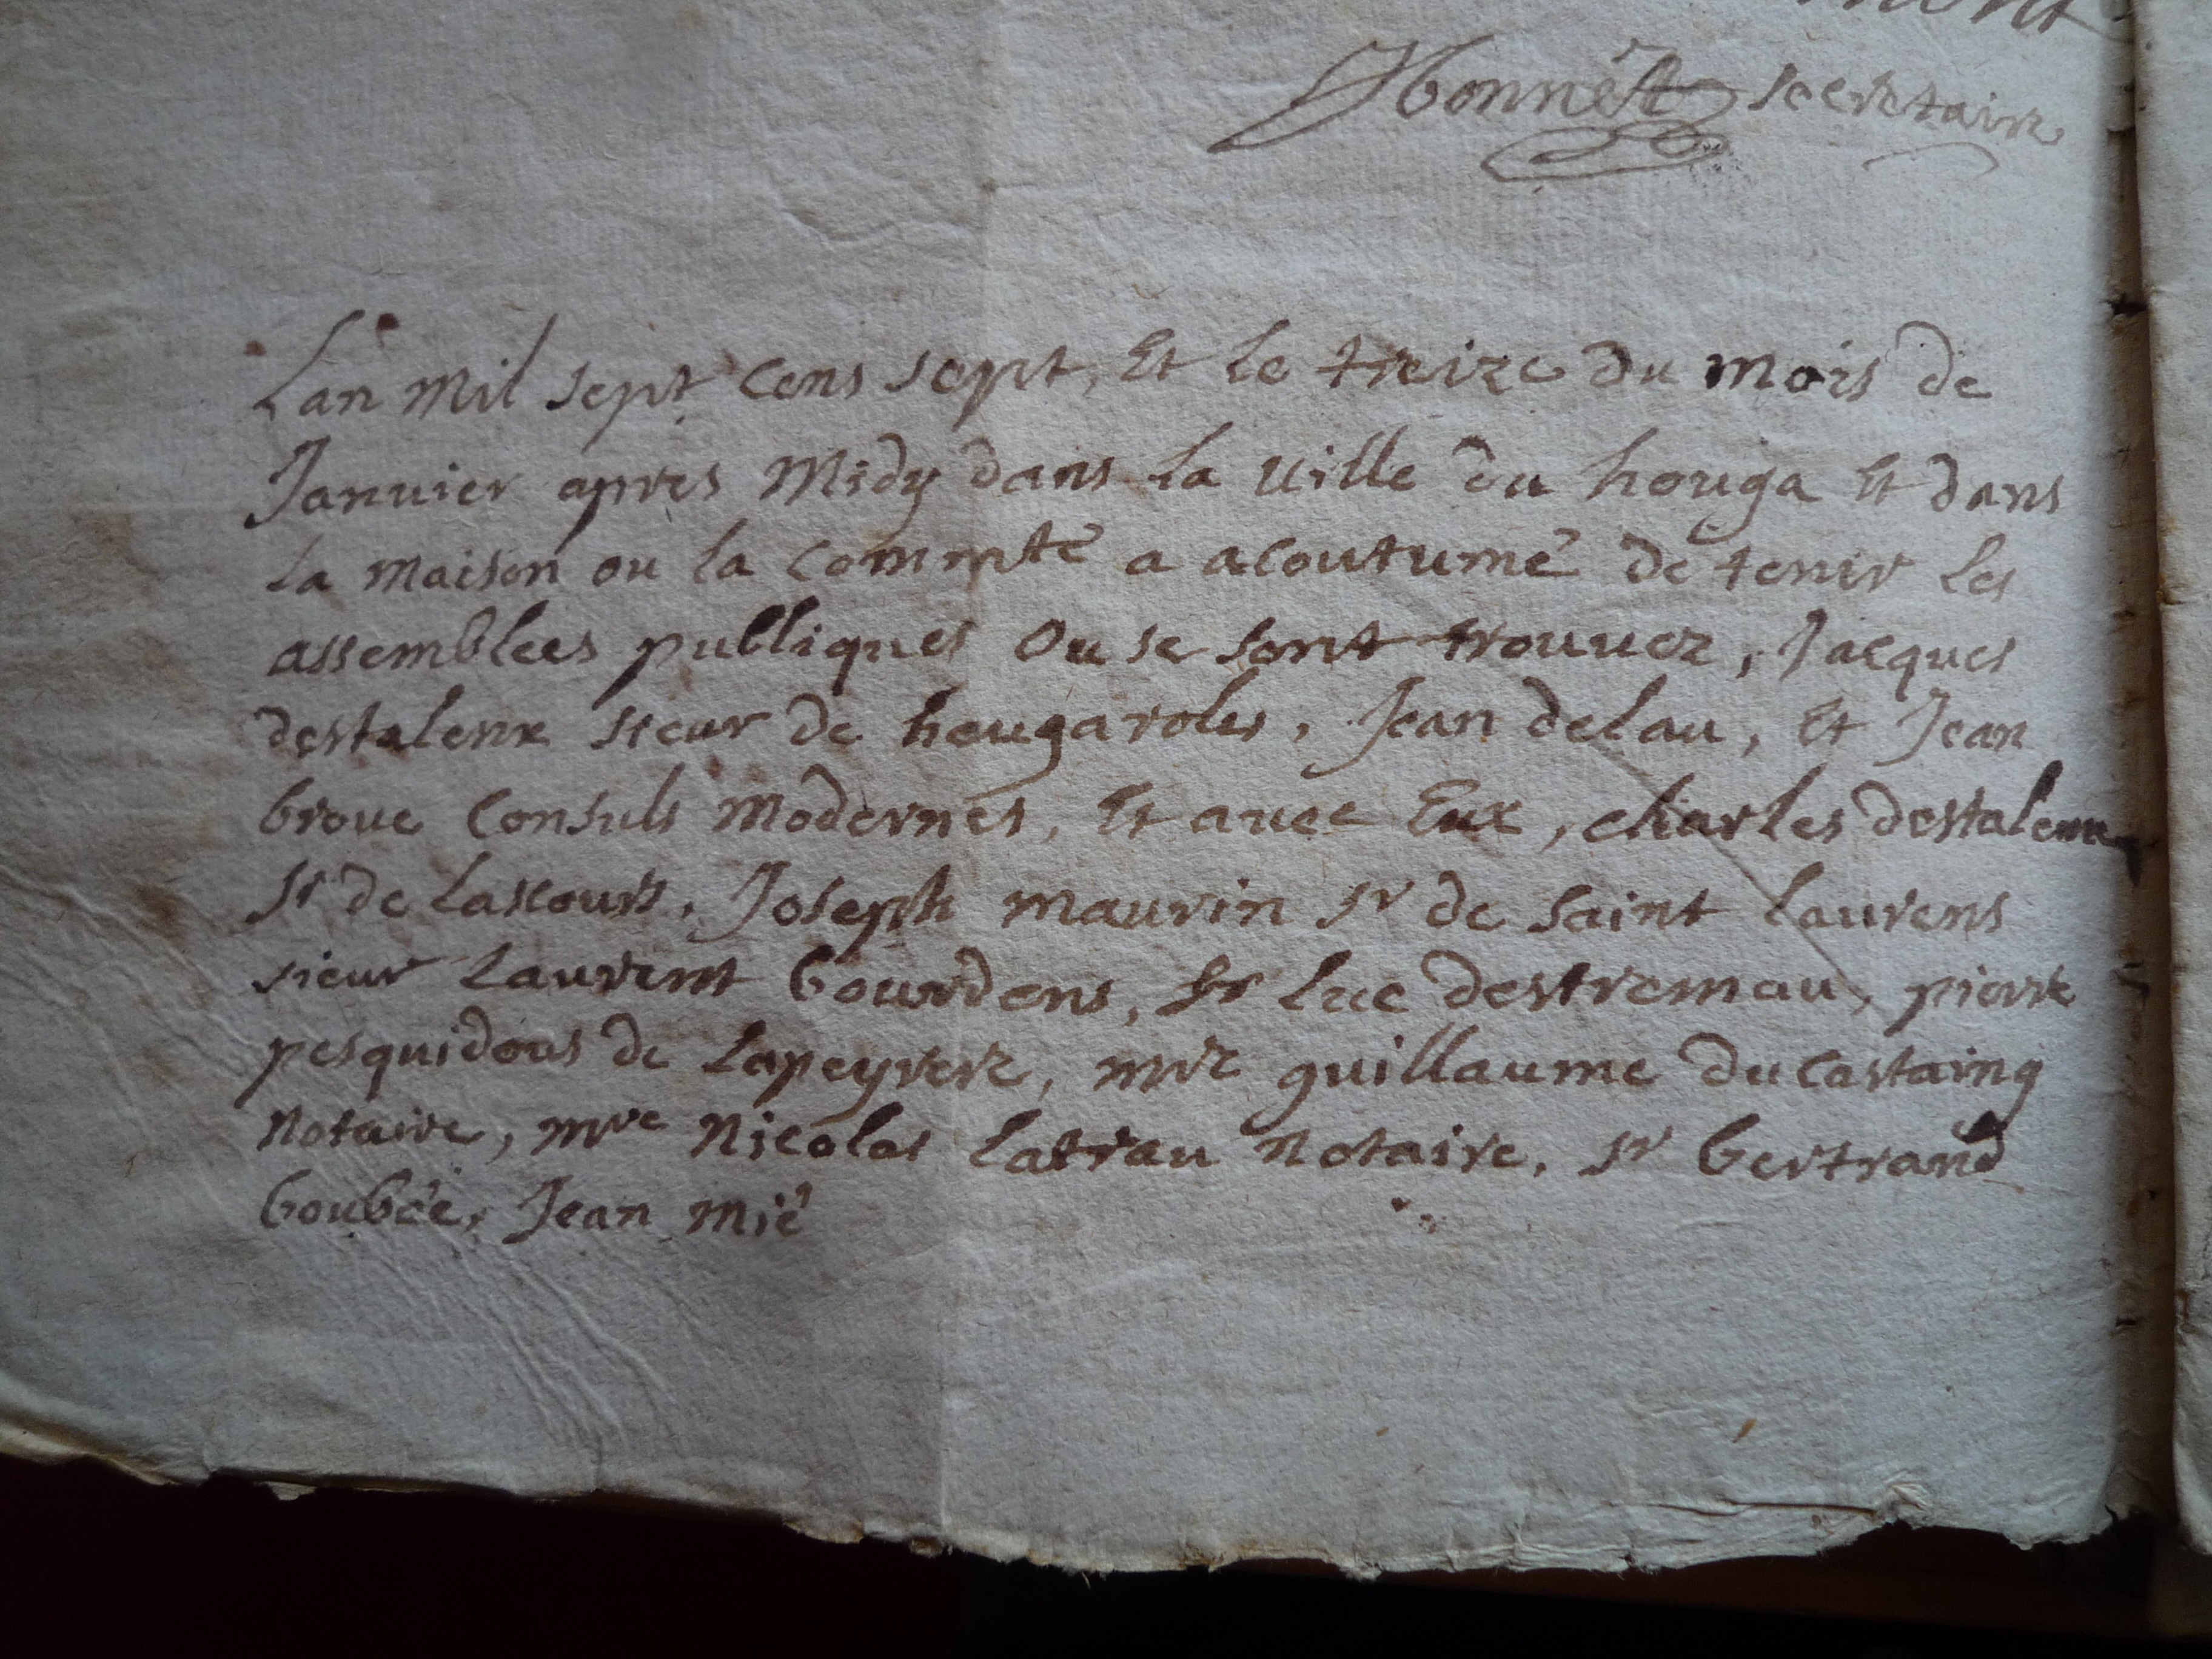 secretaire
Lan mil sept cens sept, Et le treize du mois de
Januier apres Midy dans la uille du houga Et dans
la maison ou la commpte a acoutumé de tenir les
assemblees publiques ou se sont trouuez, Jacques
destalenx sieur de heugaroles, Jean delau, Et Jean
broue Consuls modernes, Et auec Eux, charles destalenx
sr de Lascours, Joseph maurin sr de saint laurens
sieur laurent bourdens, sr luc destremau, pierre
pesquidous de Lapeyrere, mre guillaume ducastaing
notaire, mre nicolas latrau notaire, sr bertrand
boubée, Jean mié